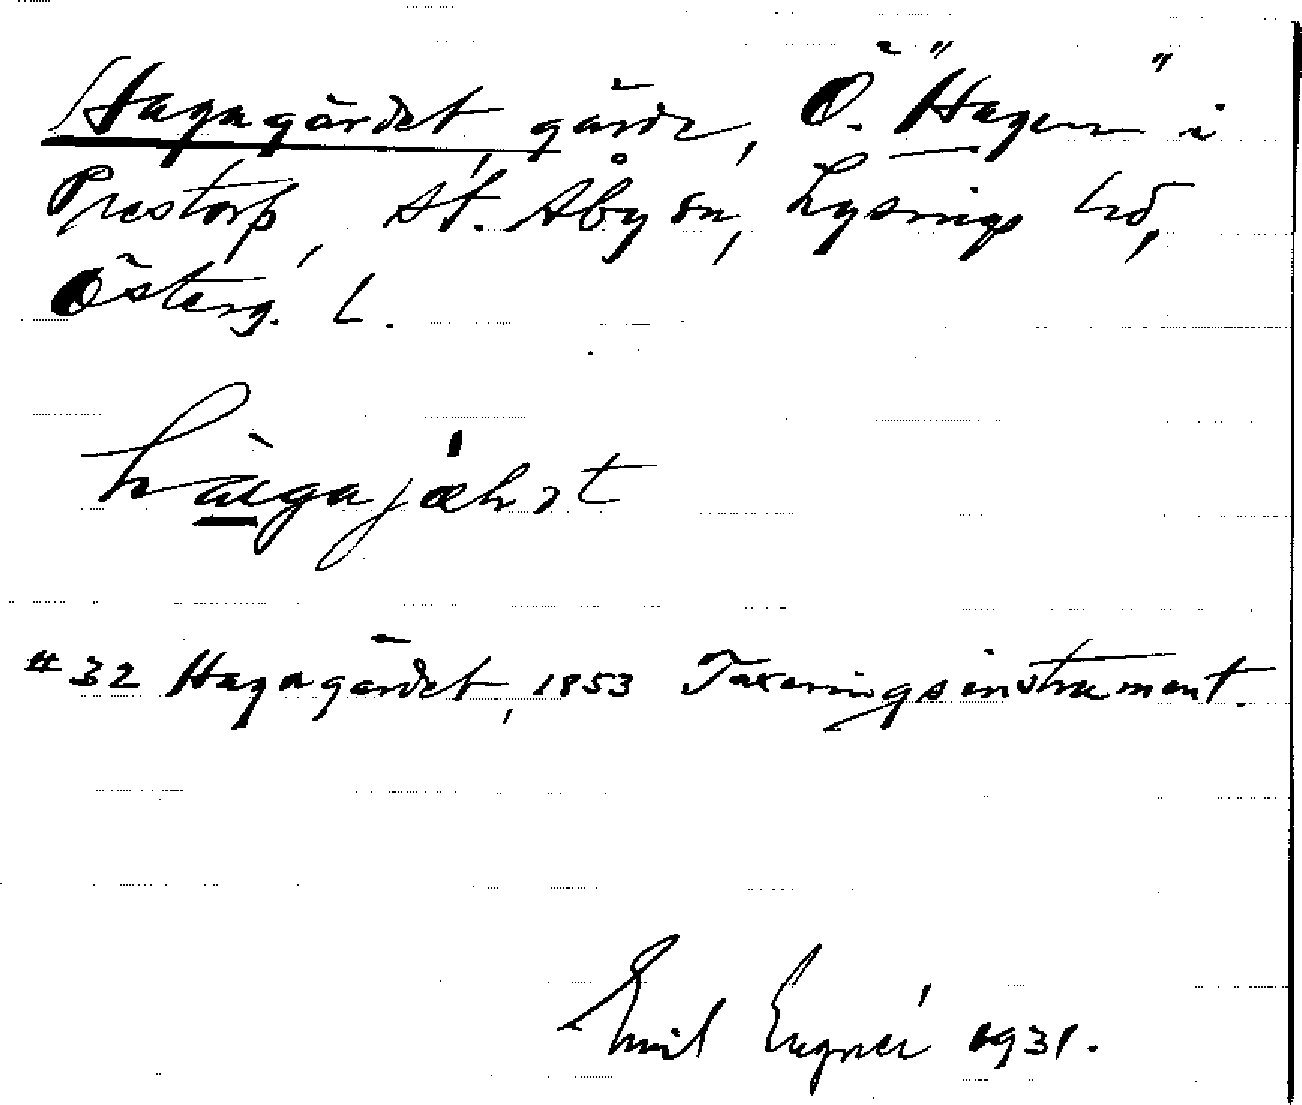 Hagagärdet, gärde, Ö. "Hagen" i
Prestorp, St. Åby sn, Lysings hd,
Österg. l.
#32 Hagagärdet, 1853 Taxeringsinstrument.
Emil Eugnér 1931.